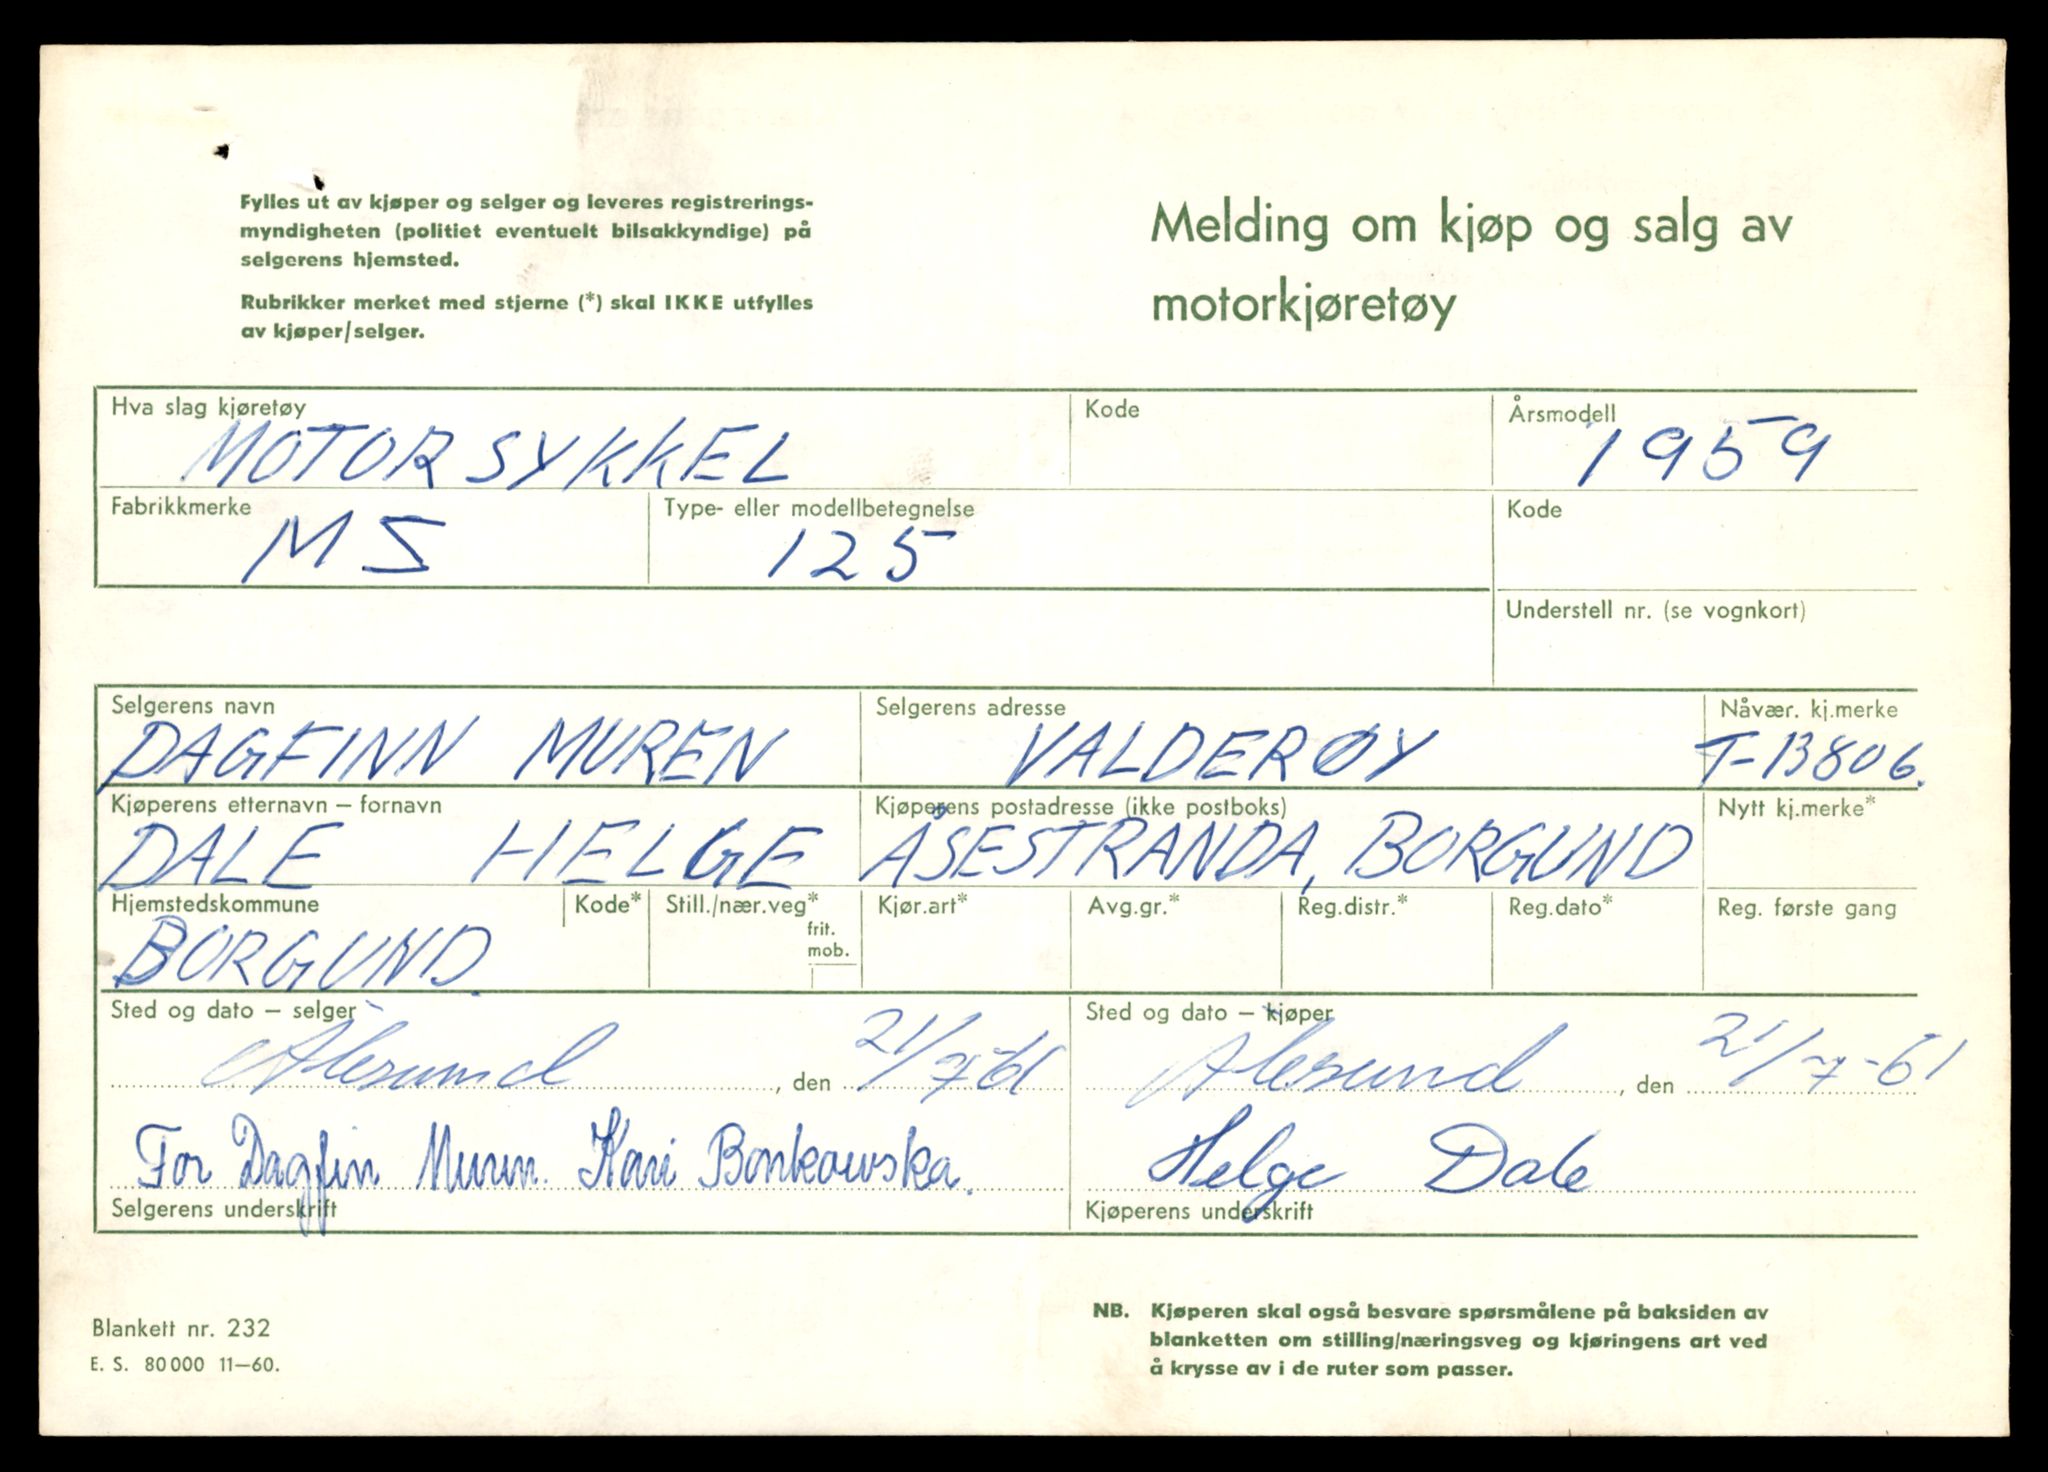 Fylles ut av kjøper og selger og leveres registrerings-
myndigheten (politiet eventuelt bilsakkyndige) på
selgerens hjemsted.
Rubrikker merket med stjerne (*) skal IKKE utfylles
av kjøper/selger.
Melding om kjøp og salg av
motorkjøretøy
Hva slag kjøretøy
MOTORSYKKEL
Kode
Årsmodell
1959
Fabrikkmerke
MS
Type- eller modellbetegnelse
125
Kode
Understell nr. (se vognkort)
Selgerens navn
DAGFINN MUREN
Selgerens adresse
VALDERØY
Nåvær. kj.merke
T-13806.
Kjøperens etternavn – fornavn
DALE HELGE
Kjøperens postadresse (ikke postboks)
ÅSESTRANDA, BORGUND
Nytt kj.merke*
Hjemstedskommune
BORGUND.
Kode*
Still./nær.veg*
frit.
mob.
Kjør.art*
Avg.gr.*
Reg.distr.*
Reg.dato*
Reg. første gang
Sted og dato – selger
Ålesund, den 21/7-61
Sted og dato – kjøper
Ålesund, den 21/7-61
For Dagfin Muren. Kari Bonkowska.
Selgerens underskrift
Helge Dale
Kjøperens underskrift
Blankett nr. 232
E. S. 80000 11–60.
NB. Kjøperen skal også besvare spørsmålene på baksiden av
blanketten om stilling/næringsveg og kjøringens art ved
å krysse av i de ruter som passer.